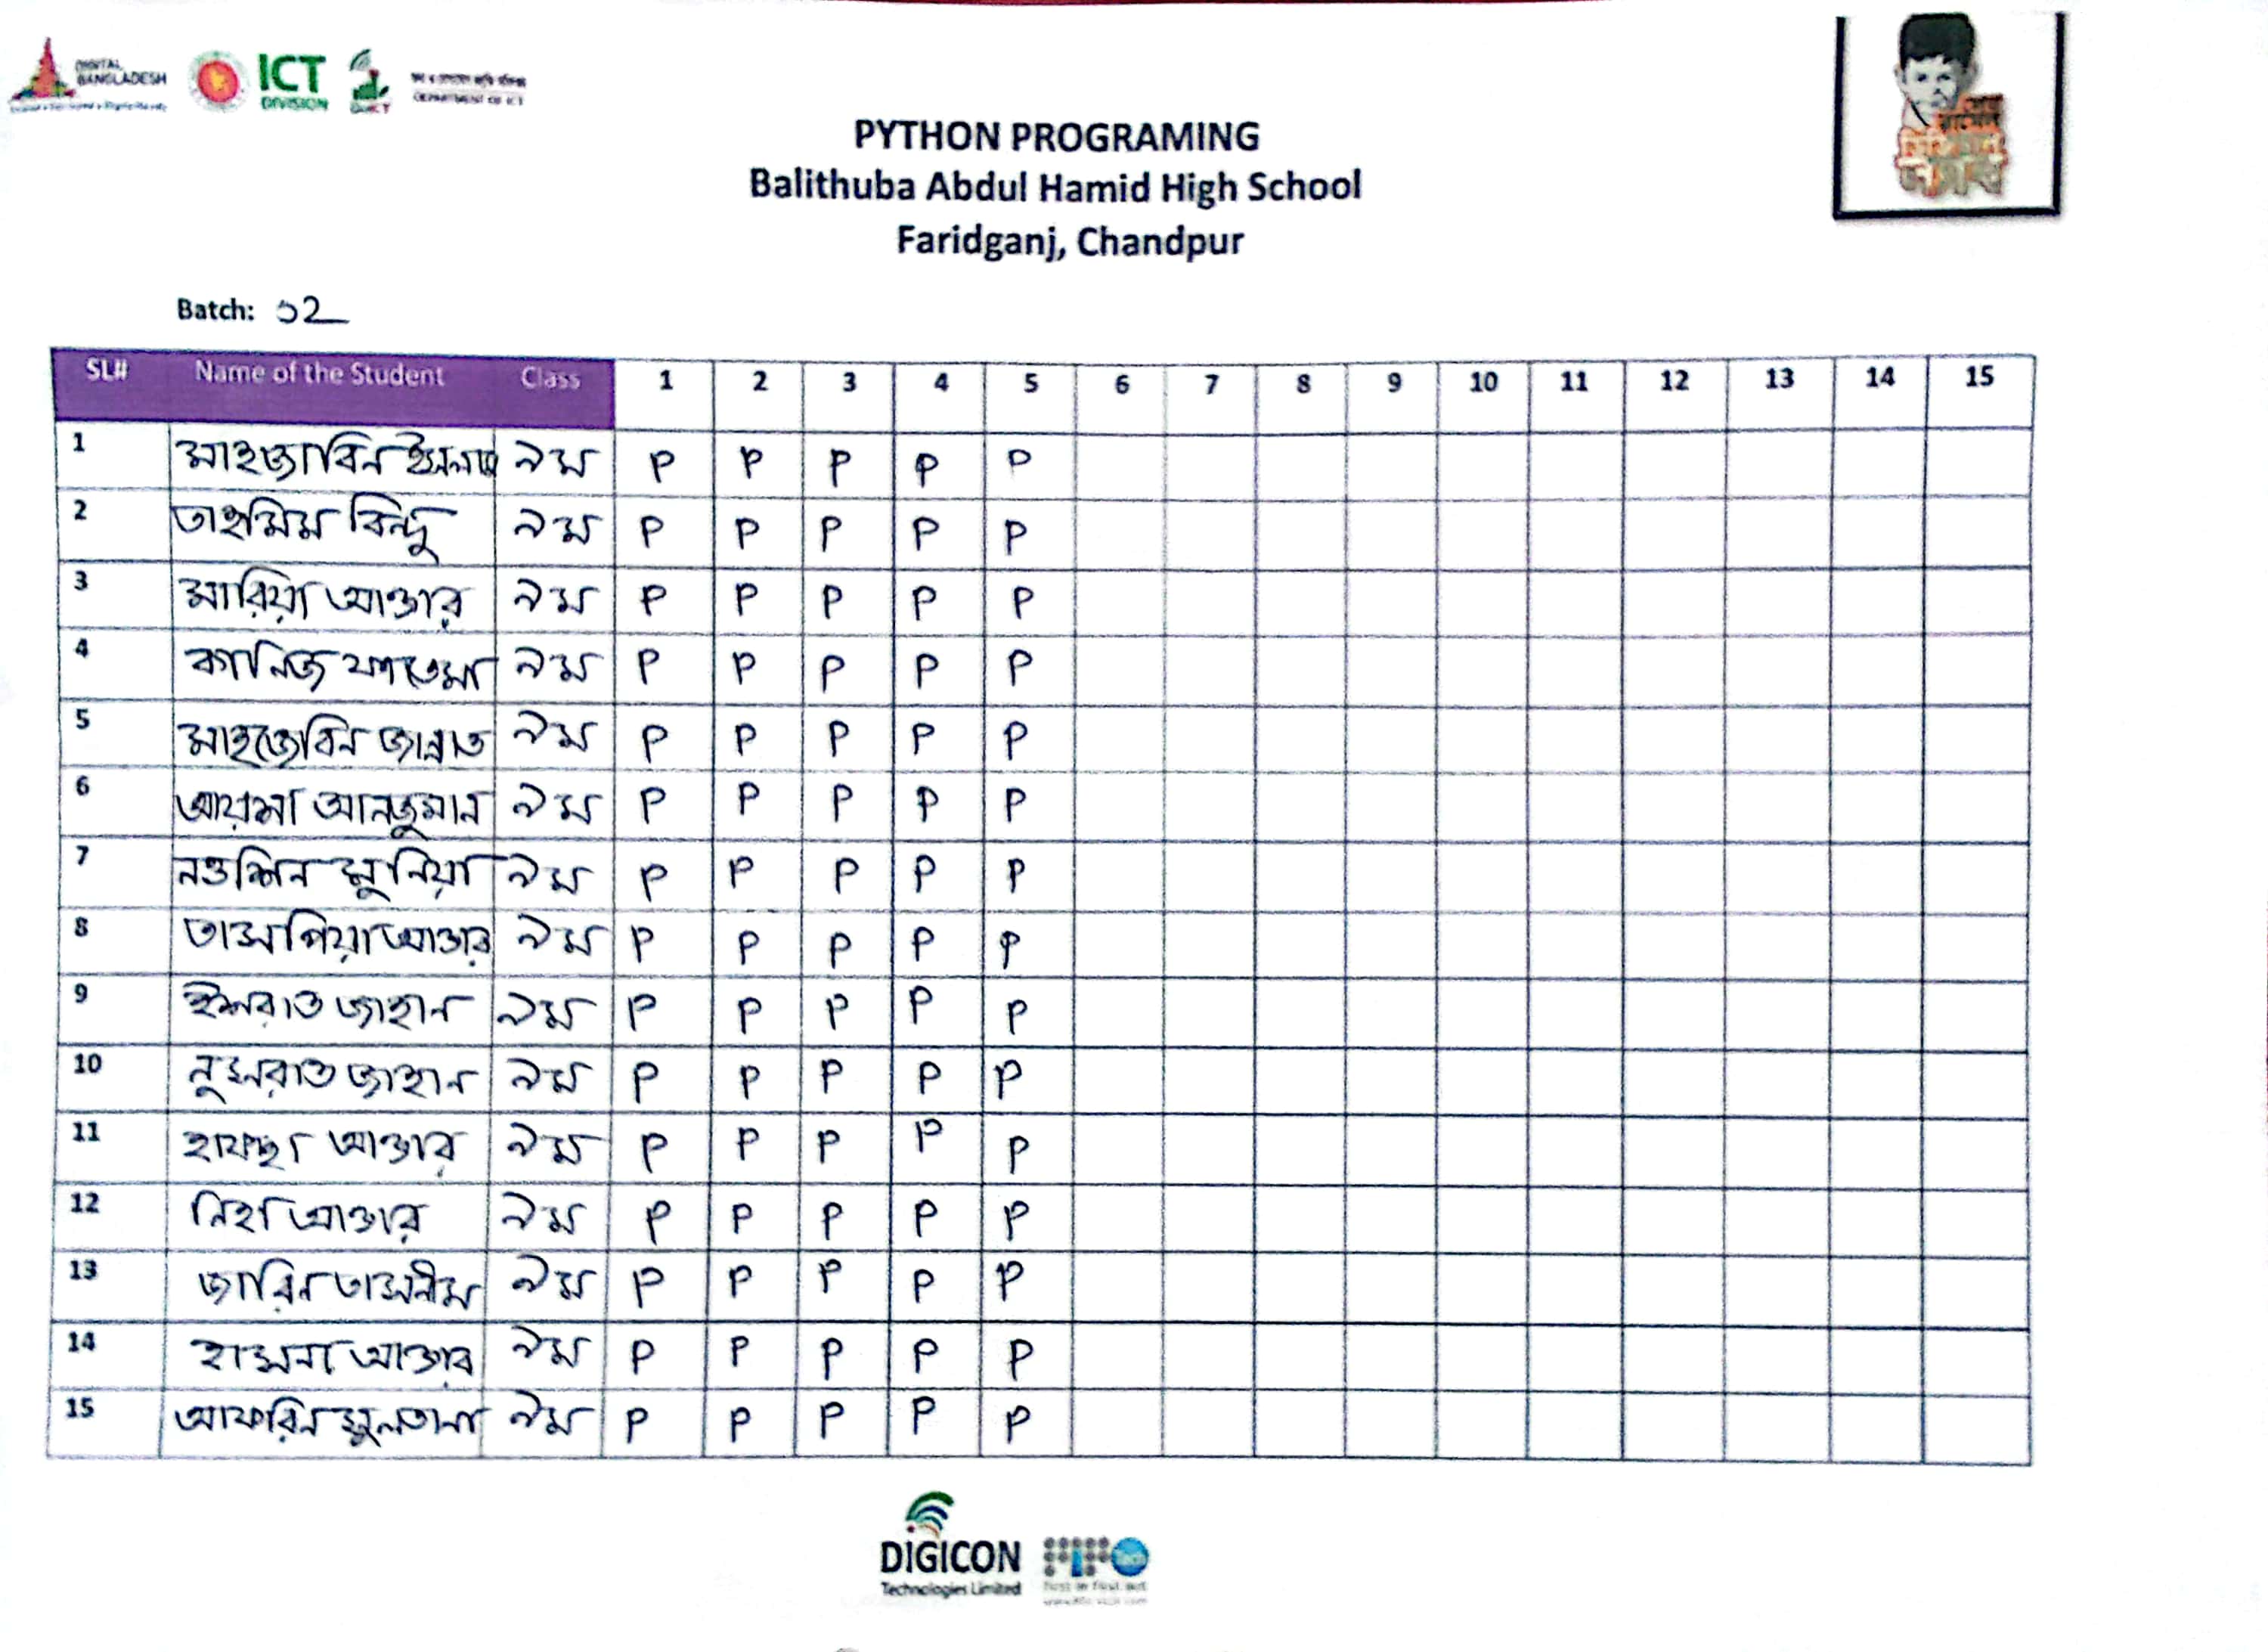 DIGITAL
BANGLADESH
ICT
DIVISION
DEPARTMENT OF ICT
PYTHON PROGRAMING
Balithuba Abdul Hamid High School
Faridganj, Chandpur
Batch: 02
SL# Name of the Student Class 1 2 3 4 5 6 7 8 9 10 11 12 13 14 15
1 মাহজাবিন ইসলাম ৯ম P P P P P
2 তাহমিম বিন্দু ৯ম P P P P P
3 মারিয়া আক্তার ৯ম P P P P P
4 কানিজ ফাতেমা ৯ম P P P P P
5 মাহজেবিন জান্নাত ৯ম P P P P P
6 আয়শা আনজুমান ৯ম P P P P P
7 নওশিন মুনিয়া ৯ম P P P P P
8 তাসপিয়া আক্তার ৯ম P P P P P
9 ইশরাত জাহান ৯ম P P P P P
10 নুসরাত জাহান ৯ম P P P P P
11 হাফছা আক্তার ৯ম P P P P P
12 নিহা আক্তার ৯ম P P P P P
13 জারিন তাসনীম ৯ম P P P P P
14 হাসনা আক্তার ৯ম P P P P P
15 আফরিন সুলতানা ৯ম P P P P P
DIGICON
Technologies Limited
Tech
First in First out